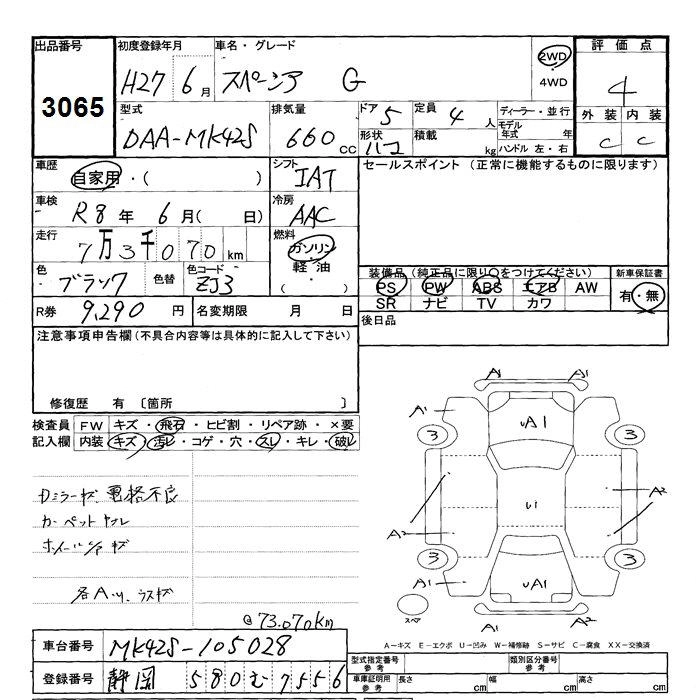 出品番号 3065
初度登録年月 H27 6月
車名・グレード スペーシア G
2WD・4WD
評価点 4
外装 C 内装 C
型式 DAA-MK42S
排気量 660cc
ドア 5 形状 ハコ
定員 4人 積載 kg
ディーラー・並行
モデル年式 年
ハンドル 左・右
車歴 自家用・( )
シフト IAT
セールスポイント (正常に機能するものに限ります)
車検 R8年 6月( 日)
冷房 AAC
走行 7万3千070km
燃料 ガソリン・軽油・( )
色 ブラック 色替 色コード ZJ3
装備品 (純正品に限り〇をつけてください)
PS PW ABS エアB AW
SR ナビ TV カワ
新車保証書 有・無
R券 9,290円 名変期限 月 日
後日品
注意事項申告欄(不具合内容等は具体的に記入して下さい)
修復歴 有 〔箇所 〕
検査員記入欄
FW キズ・飛石・ヒビ割・リペア跡・×要
内装 キズ・汚レ・コゲ・穴・スレ・キレ・破レ
Dミラーキズ 電格不良
カーペットヤブレ
ホイールC/Pキズ
各A、U、ウスキズ
@73,070km
A1 A1
A1 uA1
3 3
A2 u1 A2
3 3
A1 uA1 A1
スペア
A2
A-キズ E-エクボ U-凹み W-補修跡 S-サビ C-腐食 XX-交換済
車台番号 MK42S-105028
登録番号 静岡 580 む 7556
型式指定番号 参考 類別区分番号 参考
車庫証明用 参考 長さ cm 幅 cm 高さ cm